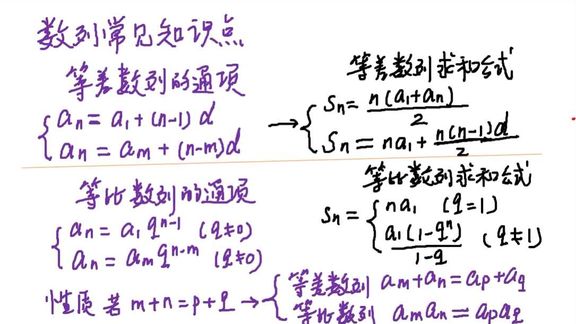 数列常见知识点
等差数列的通项
{ an = a1 + (n-1) d
{ an = am + (n-m)d
→ 等差数列求和公式
{ Sn = n(a1+an)/2
{ Sn = na1 + n(n-1)d/2
等比数列的通项
{ an = a1 q^(n-1) (q≠0)
{ an = am q^(n-m) (q≠0)
等比数列求和公式
Sn = { na1 (q=1)
{ a1(1-q^n)/(1-q) (q≠1)
性质 若 m+n=p+q → { 等差数列 am+an=ap+aq
{ 等比数列 aman=apaq